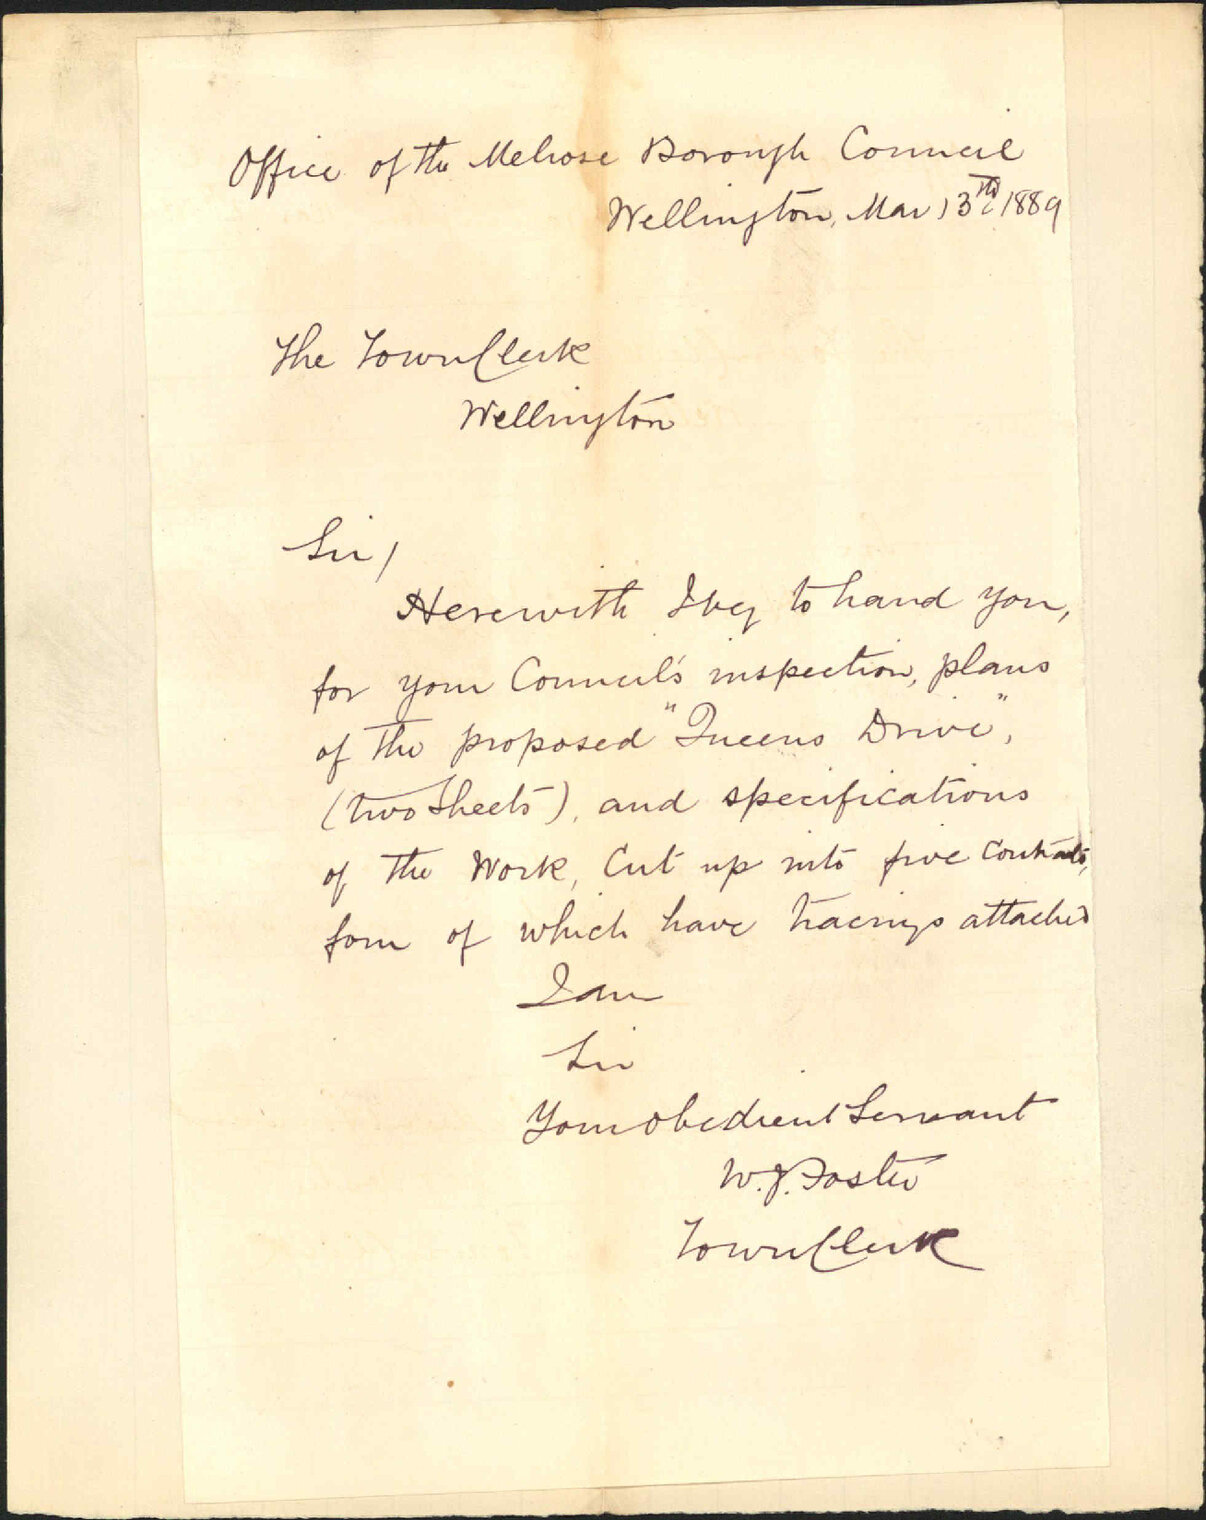 Office of the Melrose Borough Council
Wellington, Mar 13th 1889
The Town Clerk
Wellington
Sir,
Herewith I beg to hand you,
for your Council's inspection, plans
of the proposed "Queens Drive",
(two sheets), and specifications
of the Work, Cut up into five Contracts,
four of which have tracings attached
I am
Sir
Your obedient Servant
W. J. Foster
Town Clerk